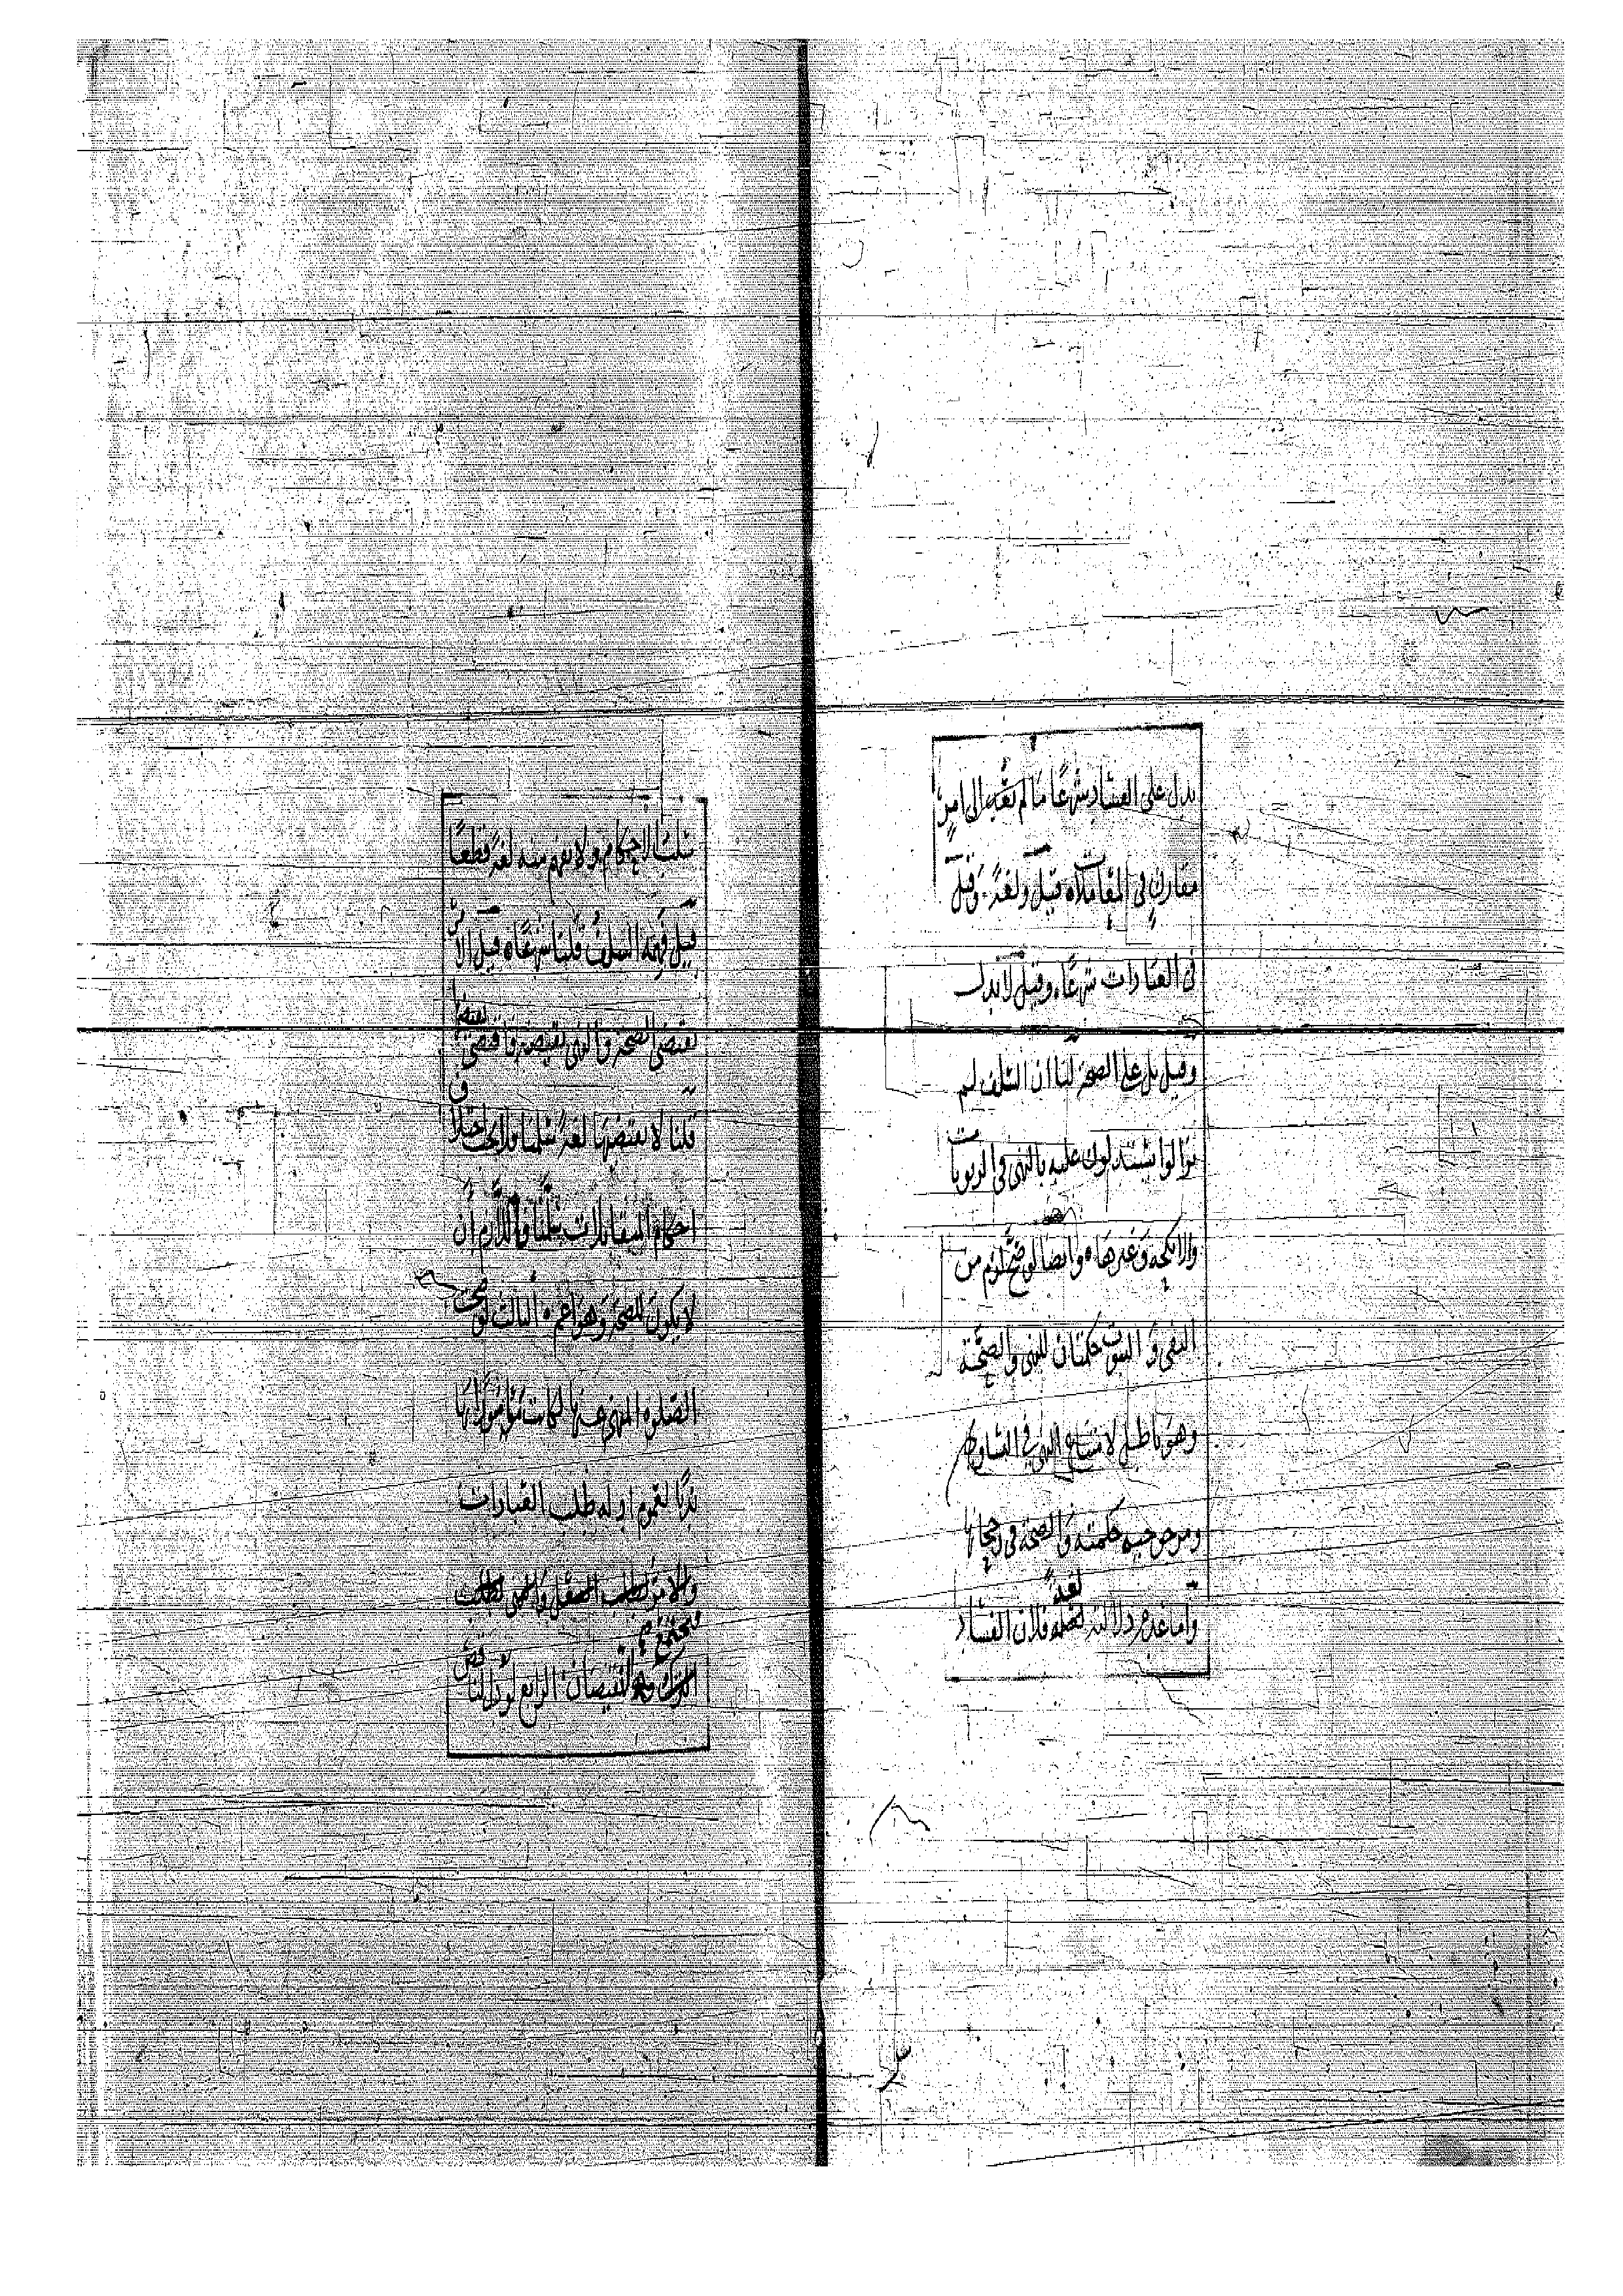 يدل على الفساد شرعًا ما لم نفيه الى امر
مقارن فى المعاملات قيل ولغة وقيل
فى العبادات شرعًا وقيل لا يدل
وقيل بل على الصحة لنا ان السلف لم
يزالوا يستدلون عليه بالنهى فى الربويات
والانكحة وغيرها وايضا لو صح لزم من
النفى و الثبوت حكمتان للنهى والصحة
وهو باطل لامتناع النهى فى التساوى
ومرجوحية حكمته والصحة فى رجحانها
واما عدم دلالته لغة فلان الفساد
سلب الاحكام ولا يفهم منه لغة قطعًا
قيل فهمه السلف قلنا شرعًا قيل الامر
يقتضى الصحة والنهى نقيضه فاقتضى نقيضها
قلنا لا يقتضيها لغة سلمنا فلا يجب اختلاف
احكام المتقابلات سلمنا فاللازم ان
لا يكون للصحة وهو اعم الثالث لو صحت
الصلوة المنهى عنها لكانت مامورًا بها
ندبًا لعموم ادلة طلب العبادات
والامر لطلب الفعل والنهى لطلب
الترك فيجتمع النقيضان الرابع لو دل لناقض